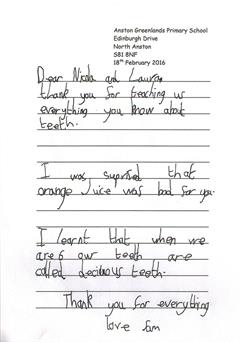 Anston Greenlands Primary School
Edinburgh Drive
North Anston
S81 8NF
18th February 2016
Dear Nicola and Lauren
thank you for teaching us
everything you know about
teeth.
I was suprised that
orange Juice was bad for you.
I learnt that when we
are 6 our teeth are
called deciduous teeth.
Thank you for everything
love Sam